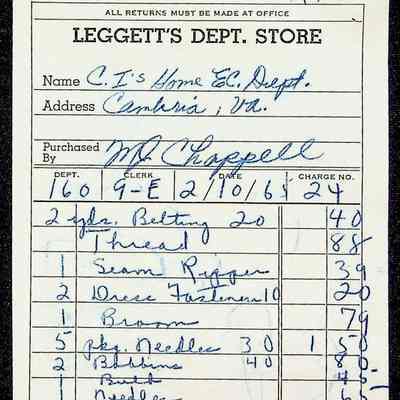 ALL RETURNS MUST BE MADE AT OFFICE
LEGGETT'S DEPT. STORE
Name C. I's Home EC. Dept.
Address Cambria, Va.
Purchased By MJ Chappell
DEPT. CLERK DATE CHARGE NO.
160 9-E 2/10/65 24
2 yds. Belting 20 40
Thread 88
1 Seam Ripper 39
2 Dress Fasteners 10 20
1 Broom 79
5 pkg. Needles 30 1 50
2 Bobbins 40 80
1 45
1 Needles 65